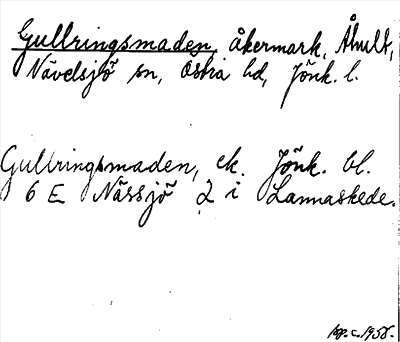 Gullringsmaden, åkermark, Åhult,
Nävelsjö sn, Östra hd, Jönk. l.
Gullringsmaden, ek. Jönk. bl.
6 E Nässjö 2 i Lannaskede.
1956.